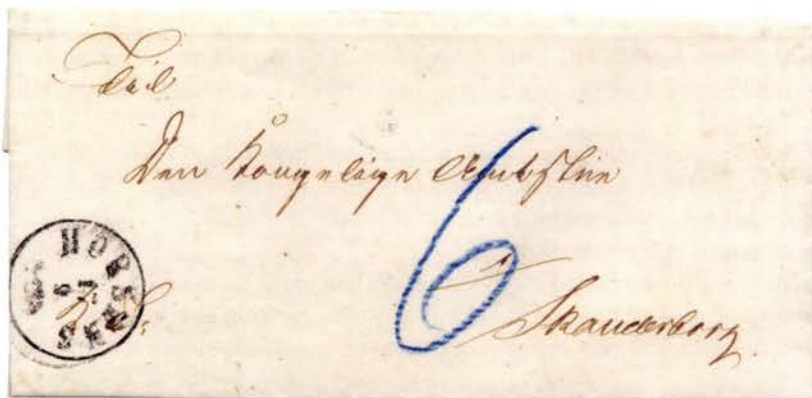 Til
Den Kongelige Amtstue
6
i
Skanderborg
HORSENS
6
7
K. S.